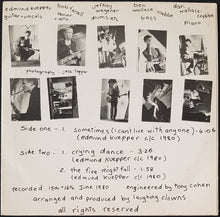 edmund kuepper
guitar-vocals
bob farrell
tenor
jeffrey wegener
drums
ben wallace crabbe
bass
dan wallace-crabbe
piano
photography - jack tepper
side one - 1. sometimes (i cant live with anyone) - 4.06
(edmund kuepper c/c 1980)
side two - 1. crying dance - 3.26
(edmund kuepper c/c 1980)
2. the fire nightfall - 1.58
(edmund kuepper c/c 1980)
recorded 15th+16th june 1980 engineered by tony cohen
arranged and produced by laughing clowns
all rights reserved